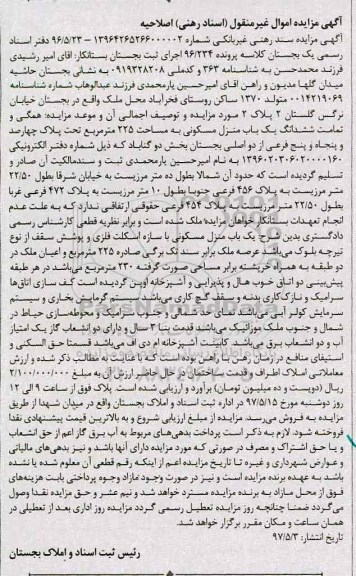 آگهی مزایده اموال غیرمنقول (اسناد رهنی) اصلاحیه
آگهی مزایده سند رهنی غیربانکی شماره ۱۳۹۶۴۲۶۵۲۶۶۰۰۰۰۰۲ – ۹۶/۵/۲۳ دفتر اسناد
رسمی یک بجستان کلاسه پرونده ۹۶/۲۳۴ اجرای ثبت بجستان بستانکار: آقای امیر رشیدی
فرزند محمدحسن به شناسنامه ۳۶۳ و کدملی ۰۹۱۹۳۲۸۲۰۸ به نشانی بجستان حاشیه
میدان گلها مدیون و راهن آقای امیرحسین یارمحمدی فرزند عبدالوهاب شماره شناسنامه
۰۰۱۴۲۱۹۰۶۹ متولد ۱۳۷۰ ساکن روستای فخرآباد محل ملک واقع در بجستان خیابان
نرگس گلستان ۲ پلاک ۲ مورد مزایده و توصیف اجمالی آن و موعد مزایده: همگی و
تمامت ششدانگ یک باب منزل مسکونی به مساحت ۲۲۵ مترمربع تحت پلاک چهارصد
و پنجاه و پنج فرعی از دو اصلی بجستان بخش دو گناباد که ذیل شماره دفتر الکترونیکی
۱۳۹۶۲۰۳۰۶۰۲۰۰۰۰۱۶۰ به نام امیرحسین یارمحمدی ثبت و سندمالکیت آن صادر و
تسلیم گردیده است که حدود آن شمالا بطول ده متر مرزیست به خیابان شرقا بطول ۲۲/۵۰
متر مرزیست به پلاک ۴۵۶ فرعی جنوبا بطول ۱۰ متر مرزیست به پلاک ۴۷۲ فرعی غربا
بطول ۲۲/۵۰ متر مرزیست به پلاک ۴۵۴ فرعی حقوقی ارتفاقی ندارد که به علت عدم
انجام تعهدات بستانکار خواهان مزایده ملک شده است و برابر نظریه قطعی کارشناس رسمی
دادگستری بدین شرح یک باب منزل مسکونی با سازه اسکلت فلزی و پوشش سقف از نوع
تیرچه بلوک می‌باشد عرصه ملک برابر سند تک برگی صادره ۲۲۵ مترمربع و اعیان ملک در
دو طبقه به همراه خرپشته برابر مساحی صورت گرفته ۲۳۰ مترمربع می‌باشد در هر طبقه
پیش‌بینی دو اتاق خوب هال و پذیرایی و آشپزخانه اوپن گردیده است کف سازی اتاق‌ها
سرامیک و نازک‌کاری بدنه و سقف گچ کاری می‌باشد سیستم گرمایش بخاری و سیستم
سرمایش کولر آبی می‌باشد
شمال و جنوب ملک موزائیک می‌باشد قدمت بنا ۳ سال و دارای دو انشعاب گاز یک امتیاز
آب و دو انشعاب برق می‌باشد. کابینت آشپزخانه ام دی اف می‌باشد قسمتا حق السکنی و
استیفای منافع در زمان رهن با راهن بوده است که با عنایت به مطالب ذکر شده و ارزش
معاملاتی املاک اطراف و قدمت ساختمان در حال حاضر ارزش آن به مبلغ ۲/۱۰۰/۰۰۰/۰۰۰
ریال (دویست و ده میلیون تومان) برآورد و ارزیابی شده است. پلاک فوق از ساعت ۹ الی ۱۲
روز دوشنبه مورخ ۹۷/۵/۱۵ در اداره ثبت اسناد و املاک بجستان واقع در میدان شهدا از طریق
مزایده به فروش می‌رسد. مزایده از مبلغ ارزیابی شروع و به بالاترین قیمت پیشنهادی نقدا
فروخته شود. لازم به ذکر است پرداخت بدهی‌های مربوط به آب برق گاز اعم از حق انشعاب
و یا حق اشتراک و مصرف در صورتی که مورد مزایده دارای آنها باشد و نیز بدهی‌های مالیاتی
و عوارض شهرداری و غیره تا تاریخ مزایده اعم از اینکه رقم قطعی آن معلوم شده یا نشده
باشد به عهده برنده مزایده است و نیز در صورت وجود مازاد وجوه پرداختی بابت هزینه‌های
فوق از محل مازاد به برنده مزایده مسترد خواهد شد و نیم عشر و حق مزایده نقدا وصول
می‌گردد ضمنا چنانچه روز مزایده تعطیل رسمی گردد مزایده روز اداری بعد از تعطیلی در
همان ساعت و مکان مقرر برگزار خواهد شد.
تاریخ انتشار: ۹۷/۵/۳
رئیس ثبت اسناد و املاک بجستان